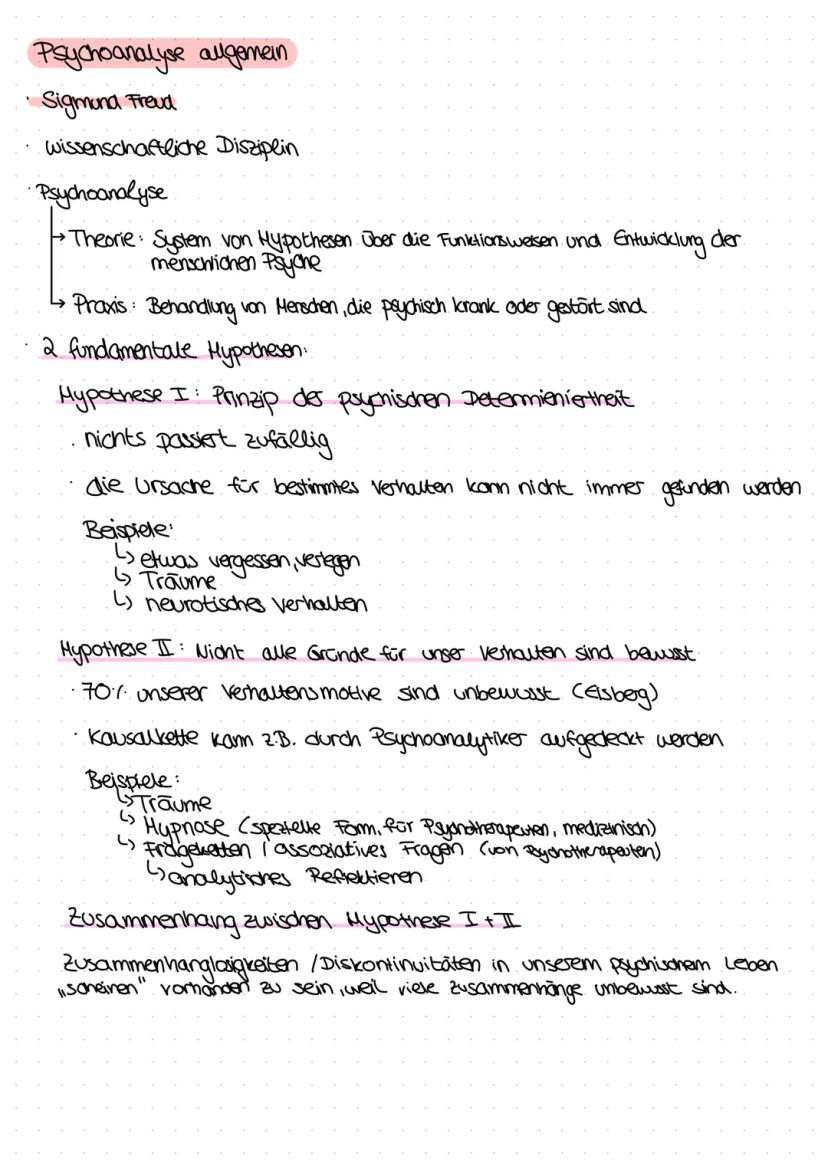 Psychoanalyse allgemein
· Sigmund Freud
· wissenschaftliche Disziplin
· Psychoanalyse
→ Theorie: System von Hypothesen über die Funktionsweisen und Entwicklung der
menschlichen Psyche
↳ Praxis: Behandlung von Menschen, die psychisch krank oder gestört sind
· 2 fundamentale Hypothesen:
Hypothese I: Prinzip des psychischen Determieniertheit
· nichts passiert zufällig
· die Ursache für bestimmtes Verhalten kann nicht immer gefunden werden
Beispiele:
↳ etwas vergessen, verlegen
↳ Träume
↳ neurotisches Verhalten
Hypothese II: Nicht alle Gründe für unser Verhalten sind bewusst
· 70% unserer Verhaltensmotive sind unbewusst (Eisberg)
· Kausalkette kann z.B. durch Psychoanalytiker aufgedeckt werden
Beispiele:
↳ Träume
↳ Hypnose (spezielle Form, für Psychotherapeuten, medizinisch)
↳ Frageketten / assoziatives Fragen (von Psychotherapeuten)
↳ analytisches Reflektieren
Zusammenhang zwischen Hypothese I + II
Zusammenhanglosigkeiten / Diskontinuitäten in unserem psychischem Leben
„scheinen" vorhanden zu sein, weil viele Zusammenhänge unbewusst sind.